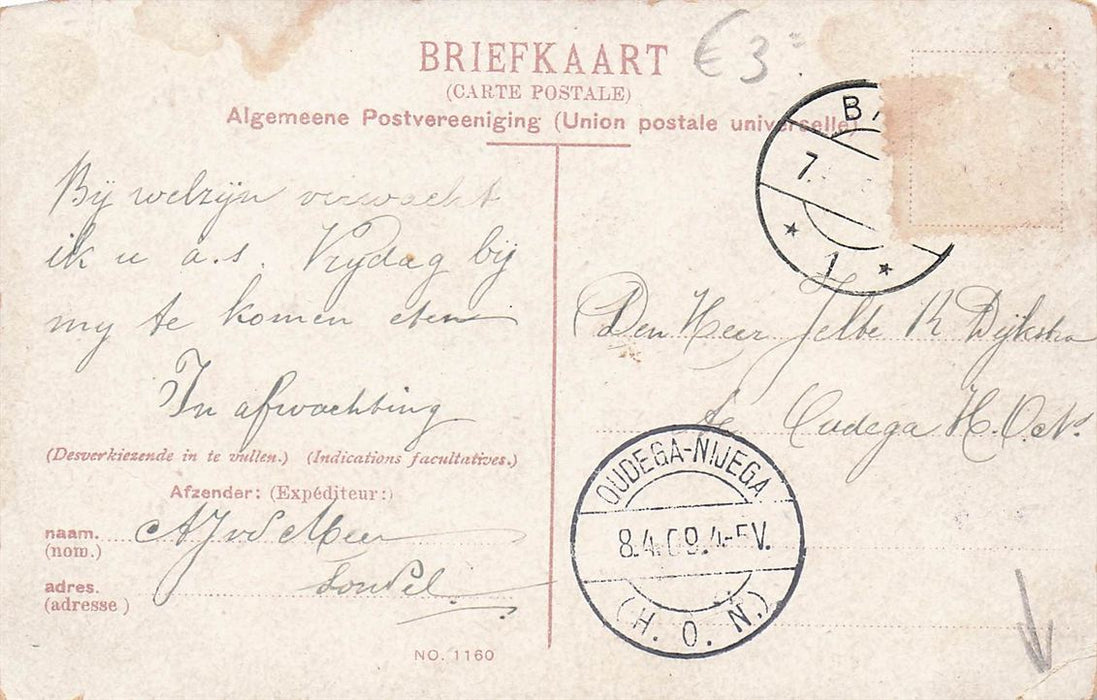 BRIEFKAART
€ 3
(CARTE POSTALE)
Algemeene Postvereeniging (Union postale universelle)
BA
7.
1
Bij welzijn verwacht
ik u a.s. Vrydag bij
my te komen eten
In afwachting
(Desverkiezende in te vullen.) (Indications facultatives.)
Afzender: (Expéditeur:)
naam. AJ vd Meer
(nom.)
adres.
(adresse)
NO. 1160
Den Heer Jelbe R Dijkstra
te Oudega H.O.N.
OUDEGA-NIJEGA
8.4.09.4-5V.
(H. O. N.)